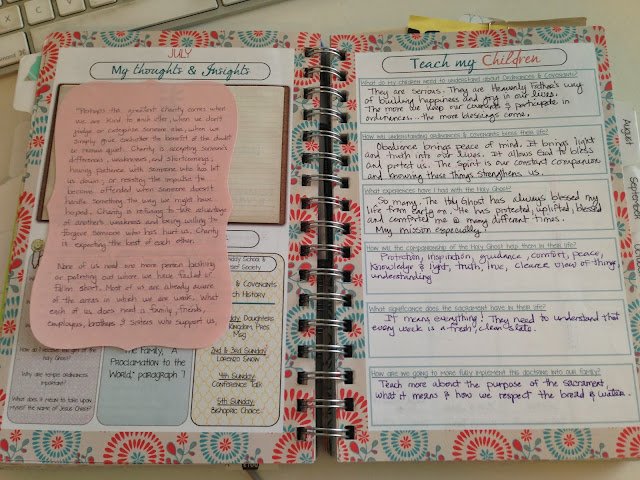 JULY
My thoughts & Insights
"Perhaps the greatest charity comes when
we are kind to each other, when we don't
judge or categorize someone else, when we
simply give each other the benefit of the doubt
or remain quiet. Charity is accepting someone's
differences, weaknesses, and shortcomings;
having patience with someone who has let
us down; or resisting the impulse to
become offended when someone doesn't
handle something the way we might have
hoped. Charity is refusing to take advantage
of another's weakness and being willing to
forgive someone who has hurt us. Charity
is expecting the best of each other.
None of us need one more person bashing
or pointing out where we have failed or
fallen short. Most of us are already aware
of the areas in which we are weak. What
each of us does need is family, friends,
employers, brothers & sisters who support us,
Holy Ghost?
Why are temple ordinances
important?
What does it mean to take upon
myself the name of Jesus Christ?
The Family, "A
Proclamation to the
World," paragraph 7
School &
Relief Society
& Covenants
Church History
Sunday: Daughters
Kingdom Pres
Msg
2nd & 3rd Sunday:
Lorenzo Snow
4th Sunday:
Conference Talk
5th Sunday:
Bishopric Choice
Teach my Children
What do my children need to understand about Ordinances & Covenants?
They are serious. They are Heavenly Father's way
of building happiness and joy in our lives.
The more we keep our covenants & participate in
ordinances... the more blessings come.
How will understanding ordinances & covenants bless their life?
Obedience brings peace of mind. It brings light
and truth into our lives. It allows God to bless
and protect us. The spirit is our constant companion
and knowing those things strengthens us.
What experiences have I had with the Holy Ghost?
So many. The Holy Ghost has always blessed my
life from early on. He has protected, uplifted, blessed
and comforted me @ many different times.
My mission especially.
How will the companionship of the Holy Ghost help them in their life?
Protection, inspiration, guidance, comfort, peace,
Knowledge & light, truth, love, clearer view of things,
understanding
What significance does the sacrament have in their life?
It means everything! They need to understand that
every week is a fresh, clean slate.
How are we going to more fully implement this doctrine into our family?
Teach more about the purpose of the sacrament
what it means & how we respect the bread & water.
August
September